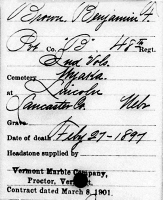 Brown, Benjamin F.
Pvt Co. "D" 48th Regt.
Ind Vols.
Cemetery Wyuka
Lincoln
Lancaster Co. Nebr
Grave
Date of death Feby 27-1897
Headstone supplied by
Vermont Marble Company,
Proctor, Vermont.
Contract dated March 8, 1901.